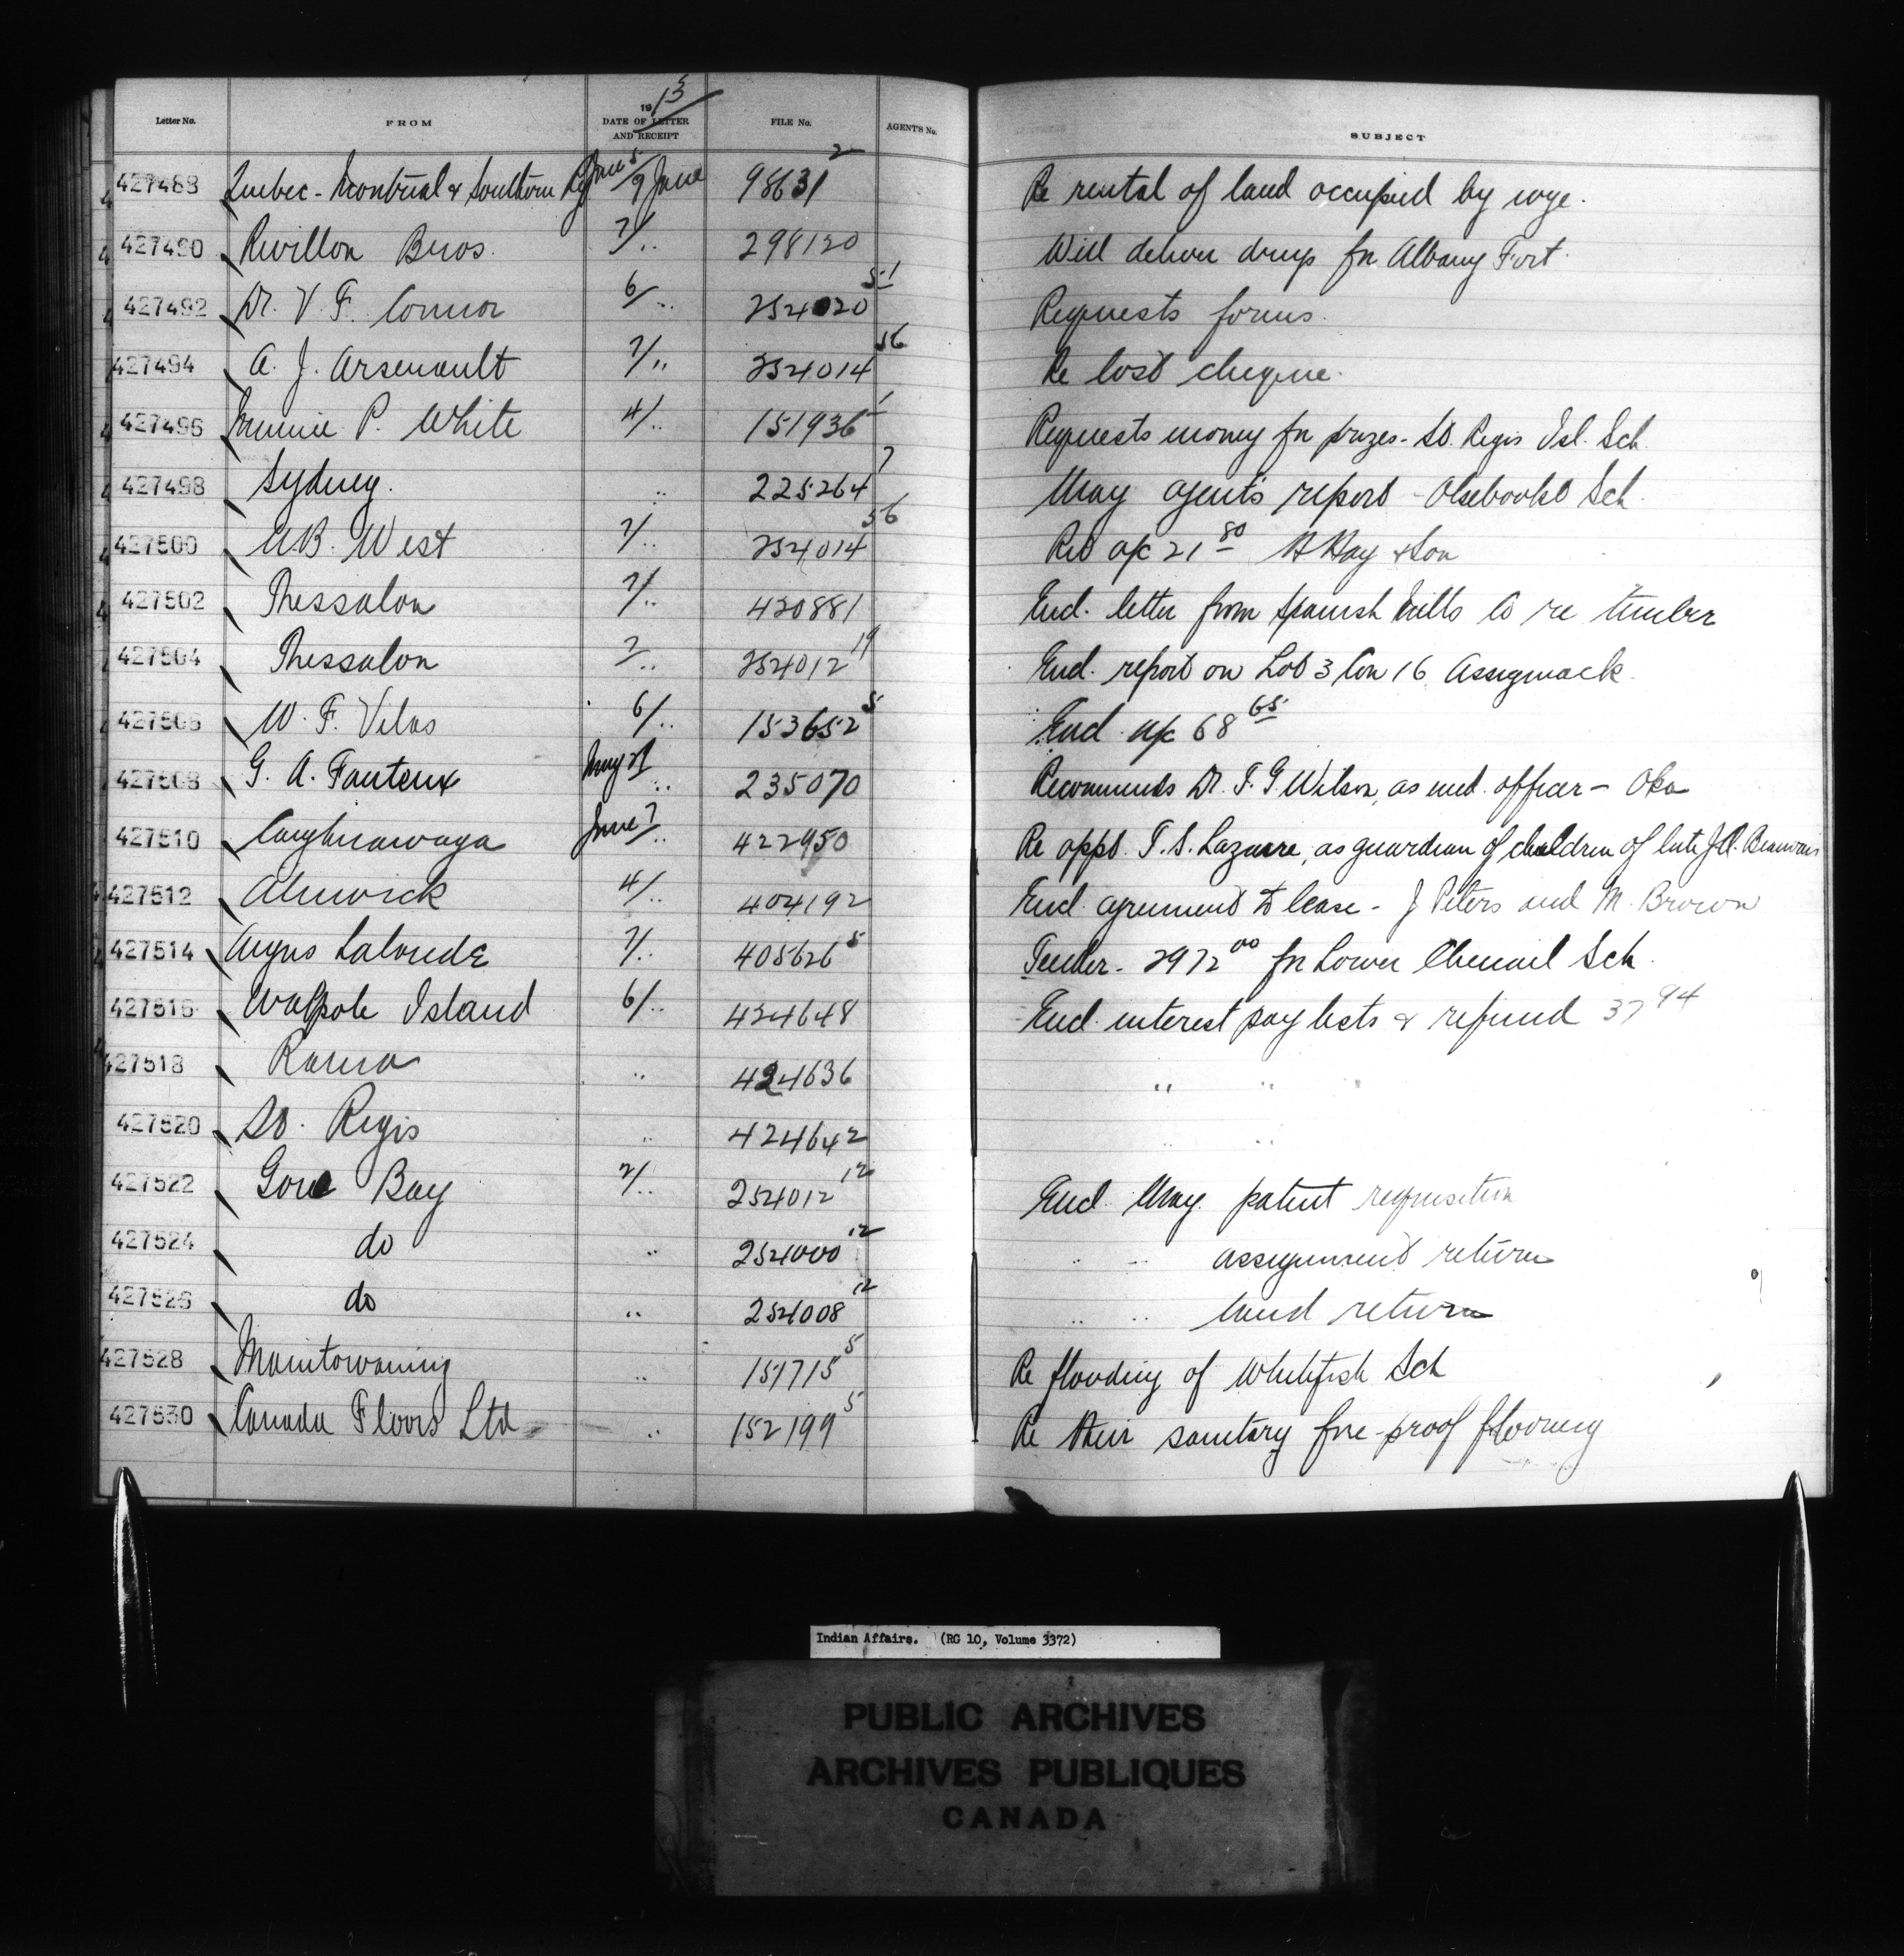 Letter No. FROM 1913 DATE OF LETTER AND RECEIPT FILE No. AGENT'S No. SUBJECT
427488 Quebec-Montreal & Southern Ry June 5/9 June 98631 2 Re rental of land occupied by wye.
427490 Revillon Bros. 7/.. 298120 Will deliver drugs for Albany Fort.
427492 Dr. V. F. Connor 6/.. 254020 51 Requests forms.
427494 A. J. Arsenault 7/.. 254014 56 Re lost cheque.
427496 P. White 4/.. 151936 1 Requests money for prizes - St. Regis Isl. Sch.
427498 Sydney. .. 225264 7 May agent's report - Sch.
427500 West 7/.. 254014 56 a/c 21 80 Hay & Son
427502 Thessalon 7/.. 420881 Encl. letter from Spanish Mills Co re timber
427504 Thessalon 7/.. 254012 19 Encl. report on Lot 3 Con 16 Assiginack.
427506 W. F. Vilas 6/.. 153652 5 Encl a/c 68 65
427508 G. A. Fauteux May 21/.. 235070 Recommends Dr. F. G. Wilson, as med. officer - Oka
427510 Caughnawaga June 7/.. 422950 Re appt. T. S. Lazarre, as guardian of children of late J. A. Beauvais
427512 Alnwick 4/.. 404192 Encl. agreement to lease - J Peters and M. Brown
427514 Angus Lalonde 7/.. 405626 5 Tender - 2972 00 for Lower Chenail Sch.
427516 Walpole Island 6/.. 424648 Encl. interest pay lists & refund 37 94
427518 Rama .. 424636 " "
427520 St. Regis .. 424642 .. ..
427522 Gore Bay 7/.. 254012 12 Encl May patent requisition
427524 do .. 254000 12 .. .. assignment return
427526 do .. 254008 12 .. .. land return
427528 Manitowaning .. 151715 5 Re flooding of Whitefish Sch
427530 Canada Floors Ltd .. 152199 5 Re their sanitary fire-proof flooring
Indian Affairs. (RG 10, Volume 3372)
PUBLIC ARCHIVES
ARCHIVES PUBLIQUES
CANADA